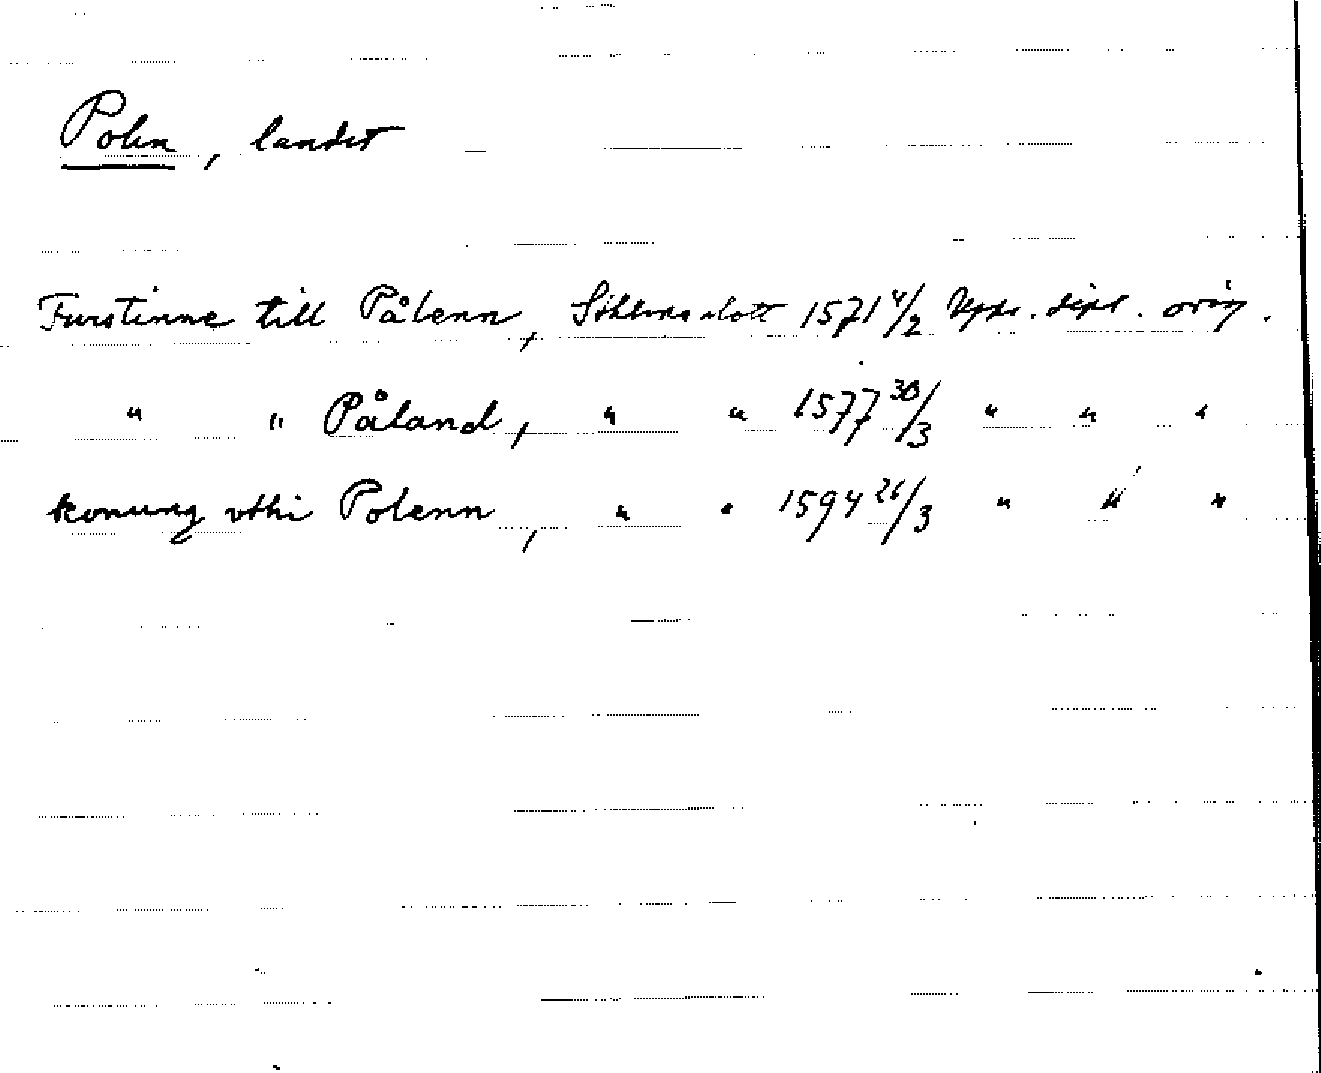 Polen, landet
Furstinne till Pålenn, Sthlms slott 1571 4/2 Upps. dipl. orig.
" " Påland, " " 1577 30/3 " " "
konung vthi Polenn, " " 1594 26/3 " " "